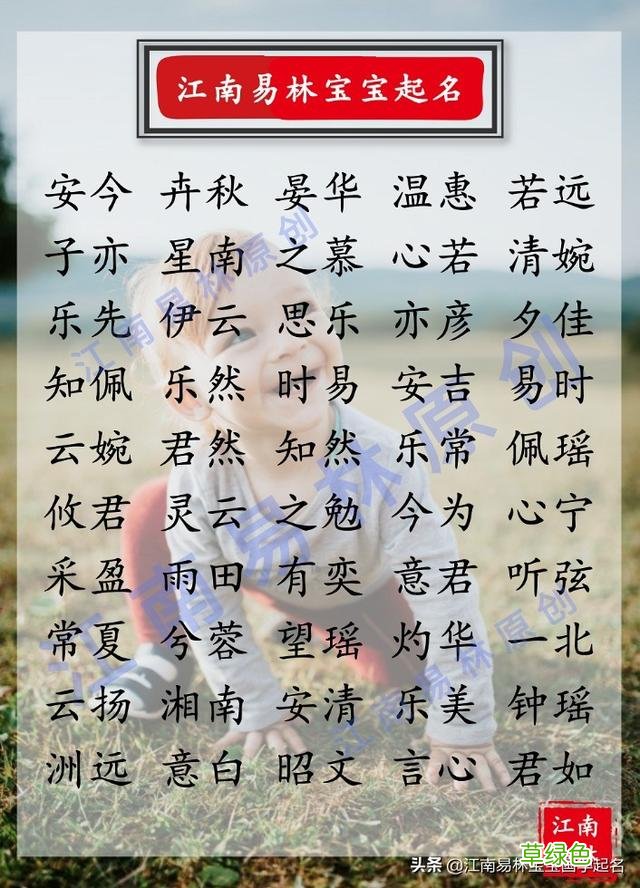 江南易林宝宝起名
安今 卉秋 晏华 温惠 若远
子亦 星南 之慕 心若 清婉
乐先 伊云 思乐 亦彦 夕佳
知佩 乐然 时易 安吉 易时
云婉 君然 知然 乐常 佩瑶
攸君 灵云 之勉 今为 心宁
采盈 雨田 有奕 意君 听弦
常夏 兮蓉 望瑶 灼华 一北
云扬 湘南 安清 乐美 钟瑶
洲远 意白 昭文 言心 君如
江南易林原创
江南易林原创
江南易林原创
江南
草绿色
头条 @江南易林宝宝国学起名